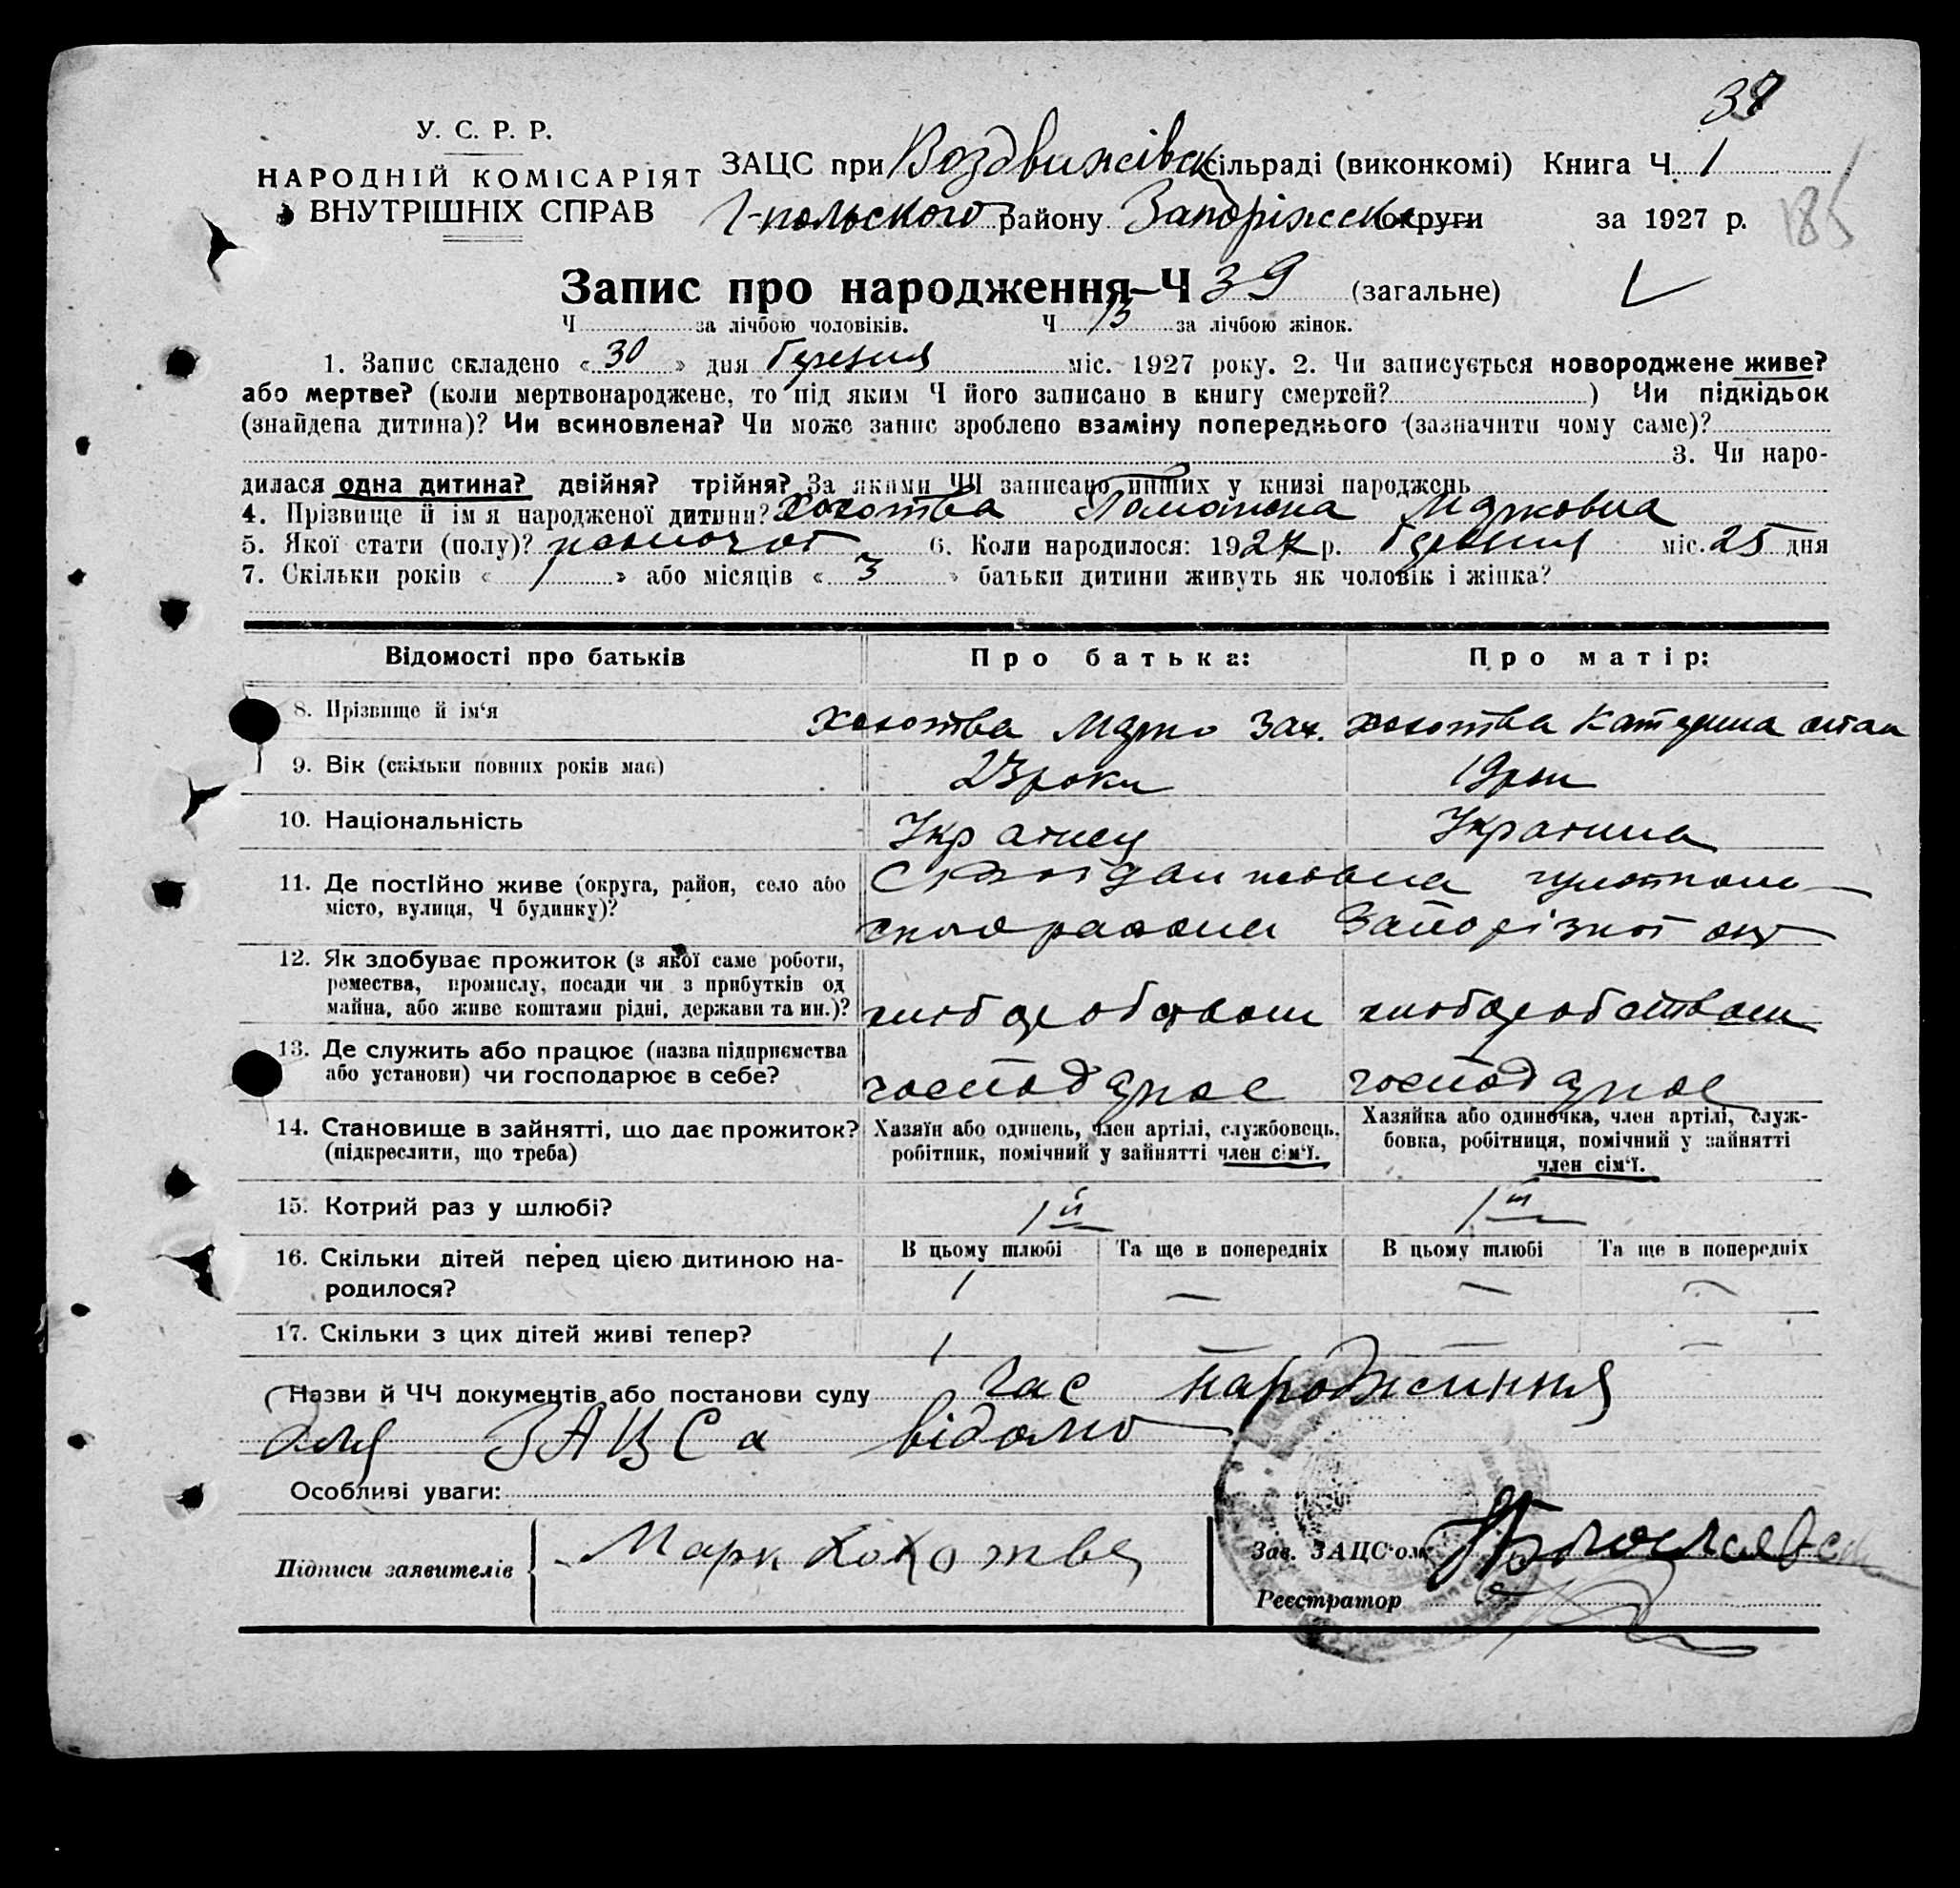 38
У. С. Р. Р.
НАРОДНІЙ КОМІСАРІЯТ
ВНУТРІШНІХ СПРАВ
ЗАЦС при Воздвижівск сільраді (виконкомі) Книга Ч. 1
Г-польского району Запоріжськ округи за 1927 р.
185
Запис про народження—Ч 39 (загальне)
Ч за лічбою чоловіків. Ч 13 за лічбою жінок.
1. Запис складено « 30 » дня березня міс. 1927 року. 2. Чи записується новороджене живе?
або мертве? (коли мертвонароджене, то під яким Ч його записано в книгу смертей? ) Чи підкідьок
(знайдена дитина)? Чи всиновлена? Чи може запис зроблено взаміну попереднього (зазначити чому саме)?
3. Чи наро-
дилася одна дитина? двійня? трійня? За якими ЧЧ записано инших у книзі народжень
4. Прізвище й ім я народженої дитини? Марковна
5. Якої стати (полу)? 6. Коли народилося: 1927 р. березня міс. 25 дня
7. Скільки років « / » або місяців « 3 » батьки дитини живуть як чоловік і жінка?
Відомості про батьків
Про батька:
Про матір:
8. Прізвище й ім'я
Марко Зах. Катерина
9. Вік (скільки повних років має)
23 роки
19 рок
10. Національність
Українец
Украинка
11. Де постійно живе (округа, район, село або
місто, вулиця, Ч будинку)?
района Запорізкої окр
12. Як здобуває прожиток (з якої саме роботи,
ремества, промислу, посади чи з прибутків од
майна, або живе коштами рідні, держави та ин.)?
хліборобством
хліборобством
13. Де служить або працює (назва підприємства
або установи) чи господарює в себе?
господарює
господарює
14. Становище в зайнятті, що дає прожиток?
(підкреслити, що треба)
Хазяїн або одинець, член артілі, службовець,
робітник, помічний у зайнятті член сім'ї.
Хазяйка або одиночка, член артілі, служ-
бовка, робітниця, помічний у зайнятті
член сім'ї.
15. Котрий раз у шлюбі?
1й
1й
16. Скільки дітей перед цією дитиною на-
родилося?
В цьому шлюбі Та ще в попередніх В цьому шлюбі Та ще в попередніх
1 — — —
17. Скільки з цих дітей живі тепер?
1 — — —
Назви й ЧЧ документів або постанови суду час народження
для ЗАЦСа відомо
Особливі уваги:
Підписи заявителів
Марк Хохотва
Зав. ЗАЦС'ом
Реєстратор